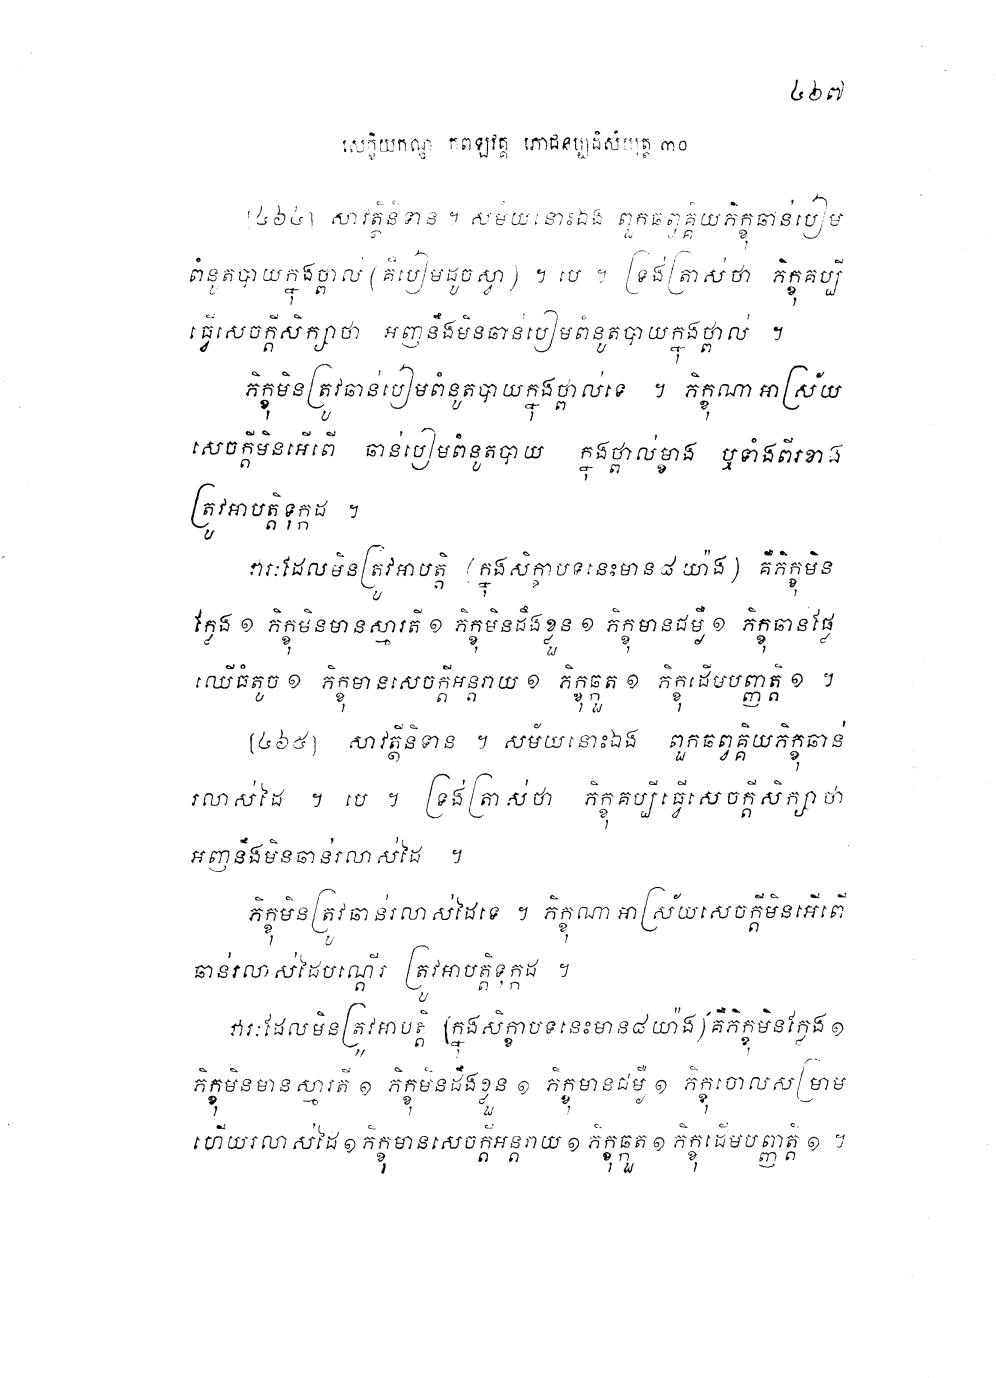 ៤៦៧
សេក្ខិយកណ្ឌ កពឡវគ្គ ភោជនប្បដិសំយុត្ត ៣០
(៤៦៤) សាវត្ថីនិទាន ។ សម័យនោះឯង ពួកឆព្វគ្គិយភិក្ខុឆាន់បៀម
ពំនូតបាយក្នុងថ្ពាល់ (គឺបៀមដូចស្វា) ។ បេ ។ ទ្រង់ត្រាស់ថា ភិក្ខុគប្បី
ធ្វើសេចក្តីសិក្សាថា អញនឹងមិនឆាន់បៀមពំនូតបាយក្នុងថ្ពាល់ ។
ភិក្ខុមិនត្រូវឆាន់បៀមពំនូតបាយក្នុងថ្ពាល់ទេ ។ ភិក្ខុណាអាស្រ័យ
សេចក្តីមិនអើពើ ឆាន់បៀមពំនូតបាយ ក្នុងថ្ពាល់ម្ខាង ឬទាំងពីរខាង
ត្រូវអាបត្តិទុក្កដ ។
វារៈដែលមិនត្រូវអាបត្តិ (ក្នុងសិក្ខាបទនេះមាន៨យ៉ាង) គឺភិក្ខុមិន
ក្លែង ១ ភិក្ខុមិនមានស្មារតី ១ ភិក្ខុមិនដឹងខ្លួន ១ ភិក្ខុមានជម្ងឺ ១ ភិក្ខុឆាន់ផ្លែ
ឈើធំតូច ១ ភិក្ខុមានសេចក្តីអន្តរាយ ១ ភិក្ខុឆ្កួត ១ ភិក្ខុដើមបញ្ញត្តិ ១ ។
(៤៦៥) សាវត្ថីនិទាន ។ សម័យនោះឯង ពួកឆព្វគ្គិយភិក្ខុឆាន់
រលាស់ដៃ ។ បេ ។ ទ្រង់ត្រាស់ថា ភិក្ខុគប្បីធ្វើសេចក្តីសិក្សាថា
អញនឹងមិនឆាន់រលាស់ដៃ ។
ភិក្ខុមិនត្រូវឆាន់រលាស់ដៃទេ ។ ភិក្ខុណាអាស្រ័យសេចក្តីមិនអើពើ
ឆាន់រលាស់ដៃបណ្តើរ ត្រូវអាបត្តិទុក្កដ ។
វារៈដែលមិនត្រូវអាបត្តិ (ក្នុងសិក្ខាបទនេះមាន៨យ៉ាង)គឺភិក្ខុមិនក្លែង ១
ភិក្ខុមិនមានស្មារតី ១ ភិក្ខុមិនដឹងខ្លួន ១ ភិក្ខុមានជម្ងឺ ១ ភិក្ខុចោលសម្រាម
ហើយរលាស់ដៃ ១ ភិក្ខុមានសេចក្តីអន្តរាយ ១ ភិក្ខុឆ្កួត ១ ភិក្ខុដើមបញ្ញត្តិ ១ ។